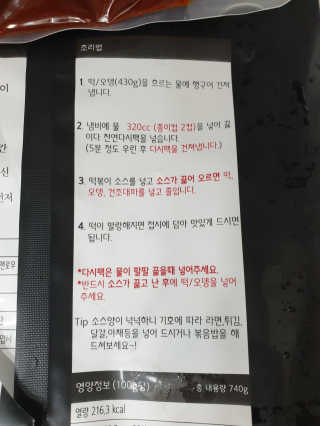 조리법
이
1. 떡/오뎅(430g)을 흐르는 물에 헹구어 건져
냅니다.
2. 냄비에 물 320cc (종이컵 2컵)을 넣어 끓
이다 천연다시팩을 넣습니다.
(5분 정도 우린 후 다시팩을 건져냅니다.)
3. 떡볶이 소스를 넣고 소스가 끓어 오르면 떡,
오뎅, 건조대파를 넣고 졸입니다.
4. 떡이 말랑해지면 접시에 담아 맛있게 드시면
됩니다.
*다시팩은 물이 팔팔 끓을때 넣어주세요.
*반드시 소스가 끓고 난 후에 떡/오뎅을 넣어
주세요.
Tip 소스양이 넉넉하니 기호에 따라 라면,튀김,
달걀,야채등을 넣어 드시거나 볶음밥을 해
드셔보세요~!
영양정보 (100g당) 총 내용량 740g
열량 216.3 kcal